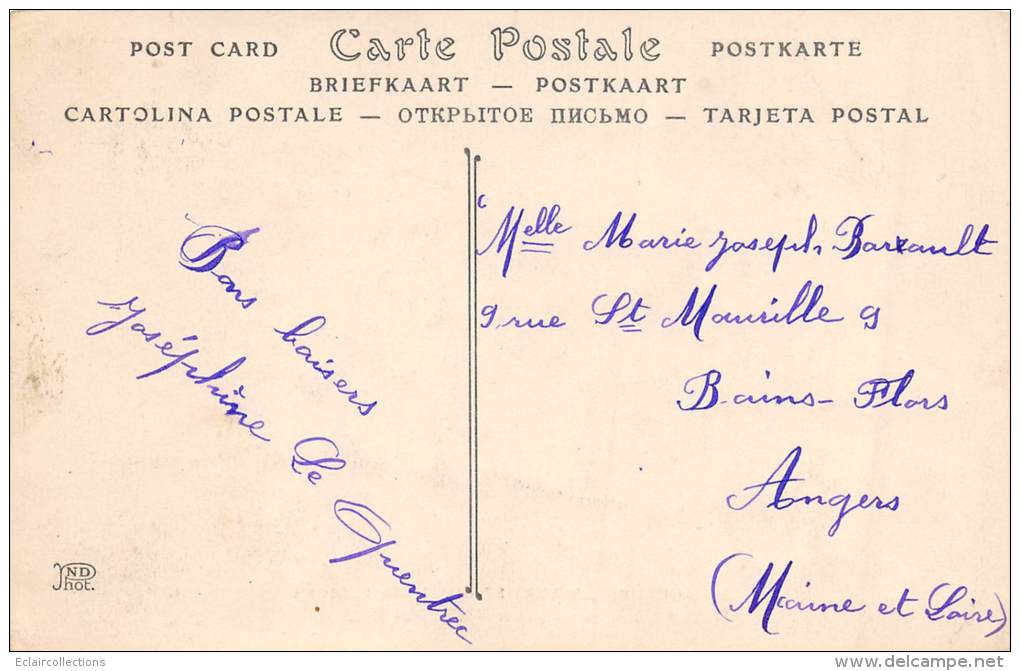 POST CARD Carte Postale POSTKARTE
BRIEFKAART — POSTKAART
CARTOLINA POSTALE — ОТКРЫТОЕ ПИСЬМО — TARJETA POSTAL
Bons baisers
Joséphine Le Quentrec
Melle Marie Joseph Barrault
9 rue St Maurille 9
Bains-Flors
Angers
(Maine et Loire)
ND Phot.
Eclaircollections
www.delcampe.net